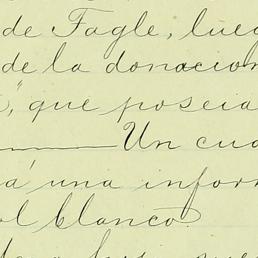 de Fagle, lue
de la donacion
," que poseia
Un cua
á una infor
ol blanco.